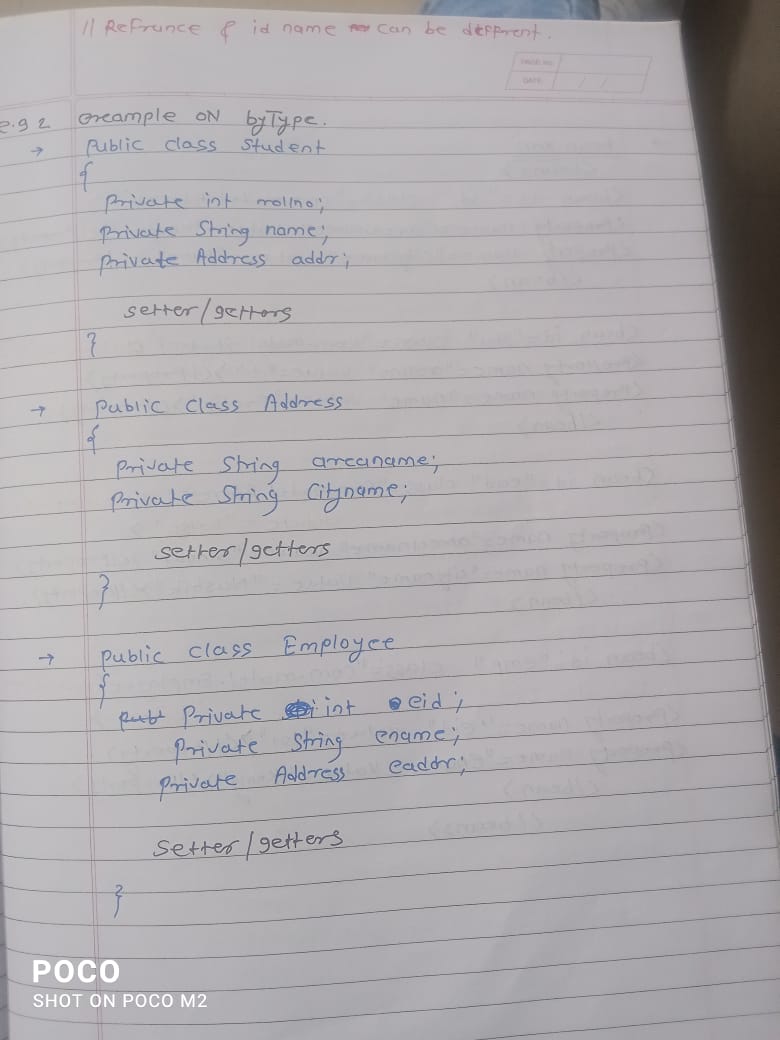 // Refrance & id name can be different.
PAGE NO.
DATE: / /
e.g 2 Example ON byType.
→ Public class Student
{
Private int rollno;
Private String name;
Private Address addr;
setter/getters
}
→ Public class Address
{
Private String areaname;
Private String Cityname;
setter/getters
}
→ Public class Employee
{
Private int eid;
Private String ename;
Private Address eaddr;
setter/getters
}
POCO
SHOT ON POCO M2